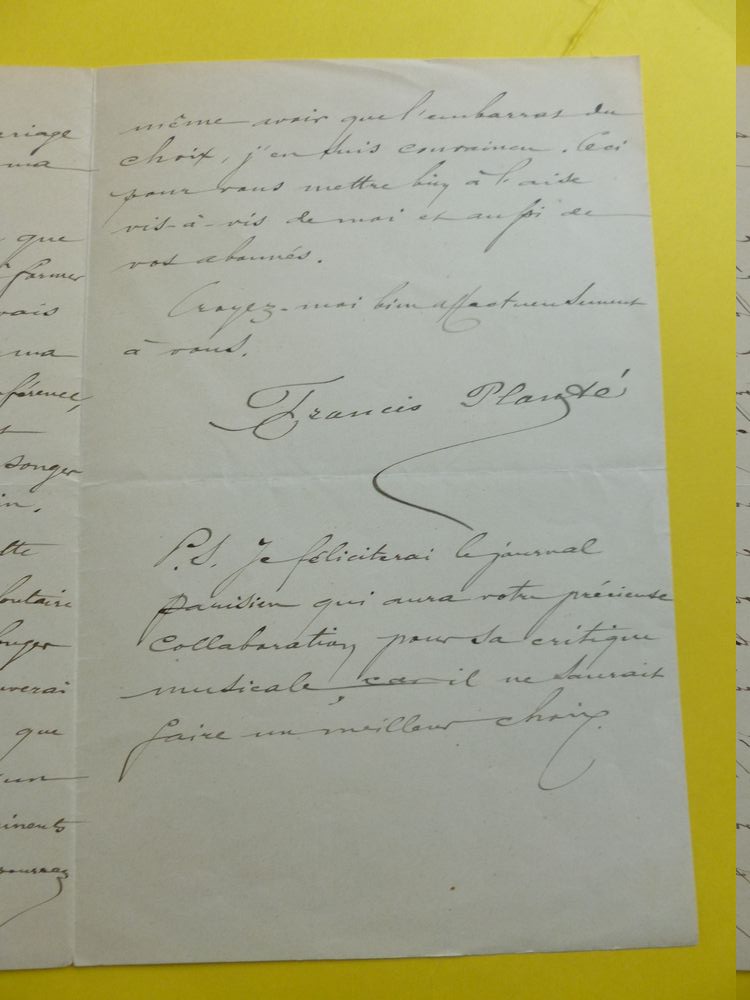 rriage
ma
que
former
vais
ma
férence,
t
songer
in.
tte
lontaire
onger
uverai
que
un
inents
pourrez
même avoir que l'embarras du
choix, j'en suis convaincu. Ceci
pour vous mettre bien à l'aise
vis-à-vis de moi et aussi de
vos abonnés.
Croyez-moi bien affectueusement
à vous.
Francis Planté
P.S. Je féliciterai le journal
parisien qui aura votre précieuse
collaboration pour sa critique
musicale, car il ne saurait
faire un meilleur choix.